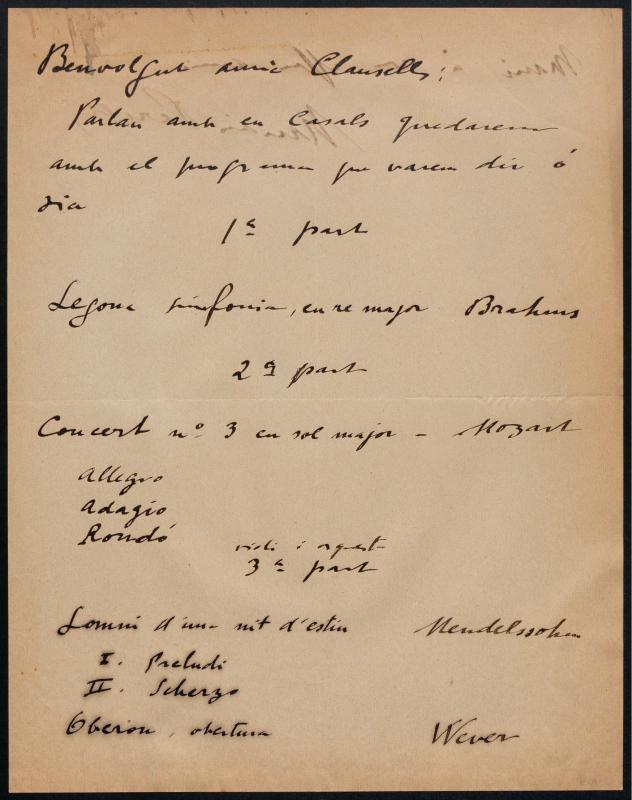 Benvolgut amic Clausells:
Parlan amb en Casals quedarem
amb el programa que varem dir ó
sia
1ª part
Segona sinfonia, en re major Brahms
2ª part
Concert nº 3 en sol major - Mozart
Allegro
Adagio
Rondó
violi i orquest
3ª part
Somni d'una nit d'estiu Mendelssohn
I. Preludi
II. Scherzo
Oberon, obertura Wever